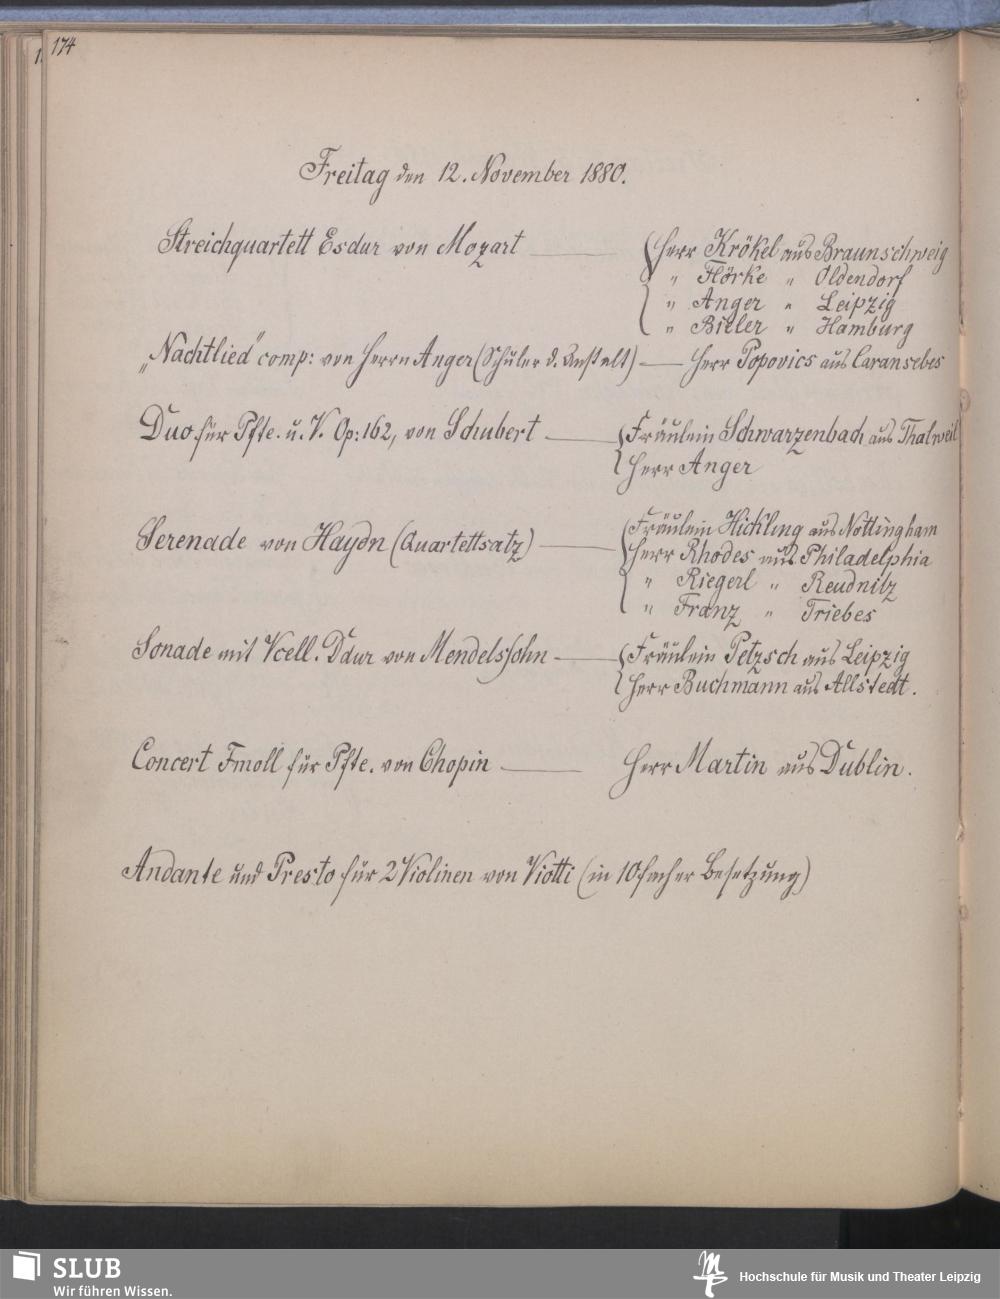 174
Freitag den 12. November 1880.
Streichquartett Esdur von Mozart — Herr Krökel aus Braunschweig
" Flörke " Oldendorf
" Anger " Leipzig
" Bieler " Hamburg
„Nachtlied" comp: von Herrn Anger (Schüler d. Anstalt) — Herr Popovics aus Caransebes
Duo für Pfte. u. V. Op: 162, von Schubert — Fräulein Schwarzenbach aus Thalweil
Herr Anger
Serenade von Haydn (Quartettsatz) — Fräulein Hickling aus Nottingham
Herr Rhodes aus Philadelphia
" Riegerl " Reudnitz
" Franz " Triebes
Sonade mit Vcell. Ddur von Mendelssohn — Fräulein Petzsch aus Leipzig
Herr Buchmann aus Allstedt.
Concert Fmoll für Pfte. von Chopin — Herr Martin aus Dublin.
Andante und Presto für 2 Violinen von Viotti (in 10facher Besetzung)
SLUB
Wir führen Wissen.
Hochschule für Musik und Theater Leipzig